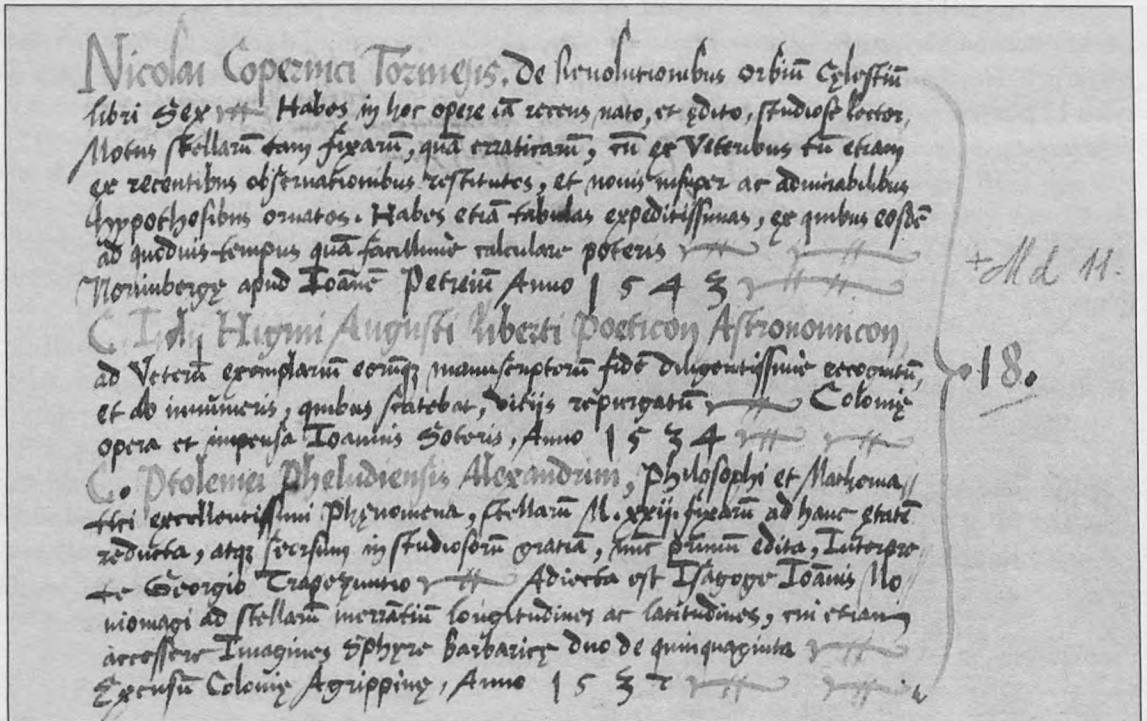 Nicolai Copernici Torinesis. De Reuolutionibus orbiũ Cęlestiũ
libri Sex Habes in hoc opere iã recens nato, et ędito, studiose lector,
Motus stellarũ tam fixarũ, quã erraticarũ, cũ ex Veteribus tũ etiam
ex recentibus obseruationibus restitutos, et nouis insuper ac admirabilibus
hypothesibus ornatos. Habes etiã tabulas expeditissimas, ex quibus eosdẽ
ad quoduis tempus quã facillime calculare poteris
Norimbergę apud Ioãnẽ Petreiũ Anno 1543
C. Iulij Higini Augusti liberti Poeticon Astronomicon,
ad Veterũ exemplariũ eorũq; manuscriptorũ fidẽ diligentissime recognitũ,
et ab innumeris, quibus scatebat, vitijs repurgatũ Colonię
opera et impensa Ioannis Soteris, Anno 1534
C. Ptolemęi Pheludiensis Alexandrini, Philosophi et Mathema//
tici excellentissimi Phęnomena, stellarũ M. xxij. fixarũ ad hanc ętatẽ
reducta, atq; seorsum in studiosorũ gratiã, nũc primũ edita, Interpre//
te Georgio Trapezuntio Adiecta est Isagoge Ioãnis No//
uiomagi ad stellarũ inerrãtiũ longitudines ac latitudines, cui etiam
accessere Imagines Sphęre barbaricę duo de quinquaginta
Excusũ Colonię Agrippinę, Anno 1537
+ Md 11.
18.